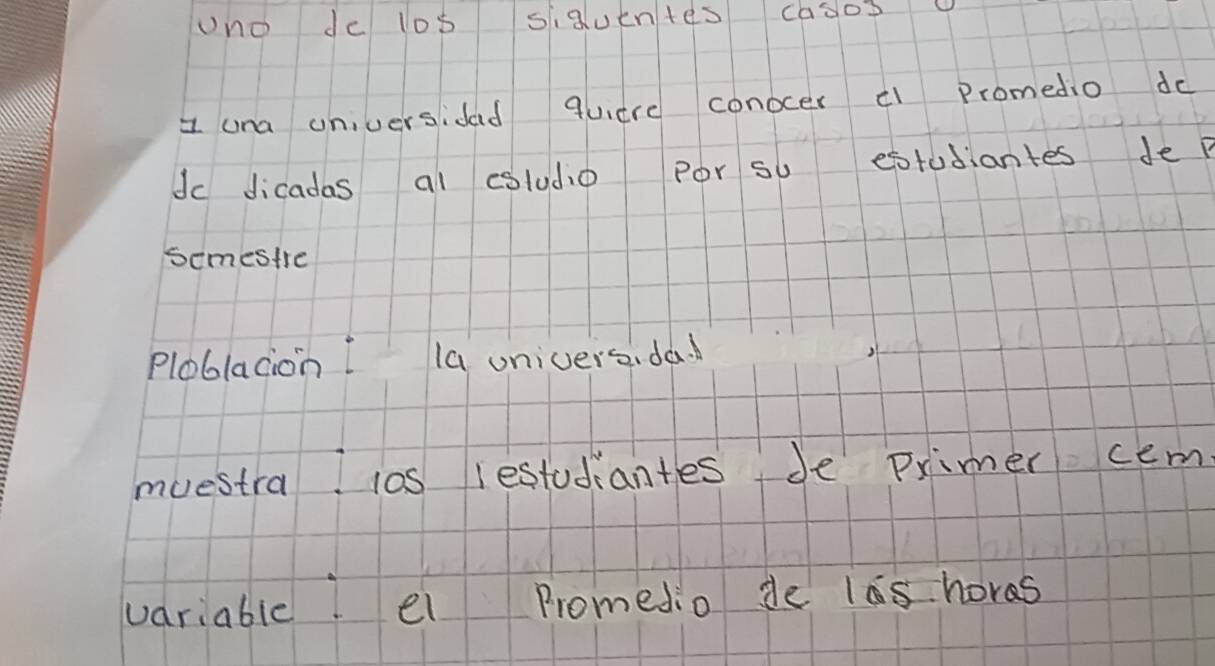 uno de los siguentes casos
1 una universidad quiere conocer el Promedio de
de dicadas al estudio Por su estudiantes de P
semestre
Ploblacion : la universidad
muestra : los estudiantes de Primer cem
variable : el Promedio de las horas